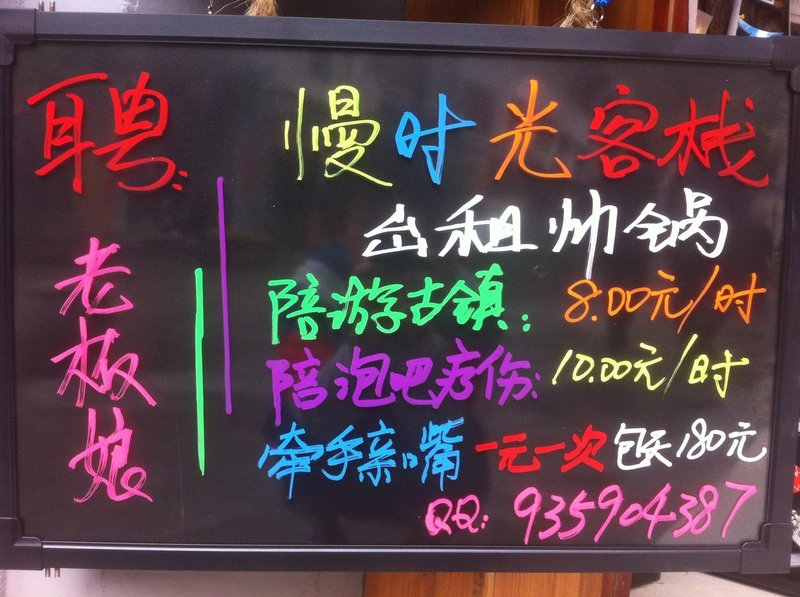 聘:
老板娘
慢时光客栈
出租帅锅
陪游古鎮: 8.00元/时
陪泡吧疗伤: 10.00元/时
牵手亲嘴 一元一次 包天180元
QQ: 935904387